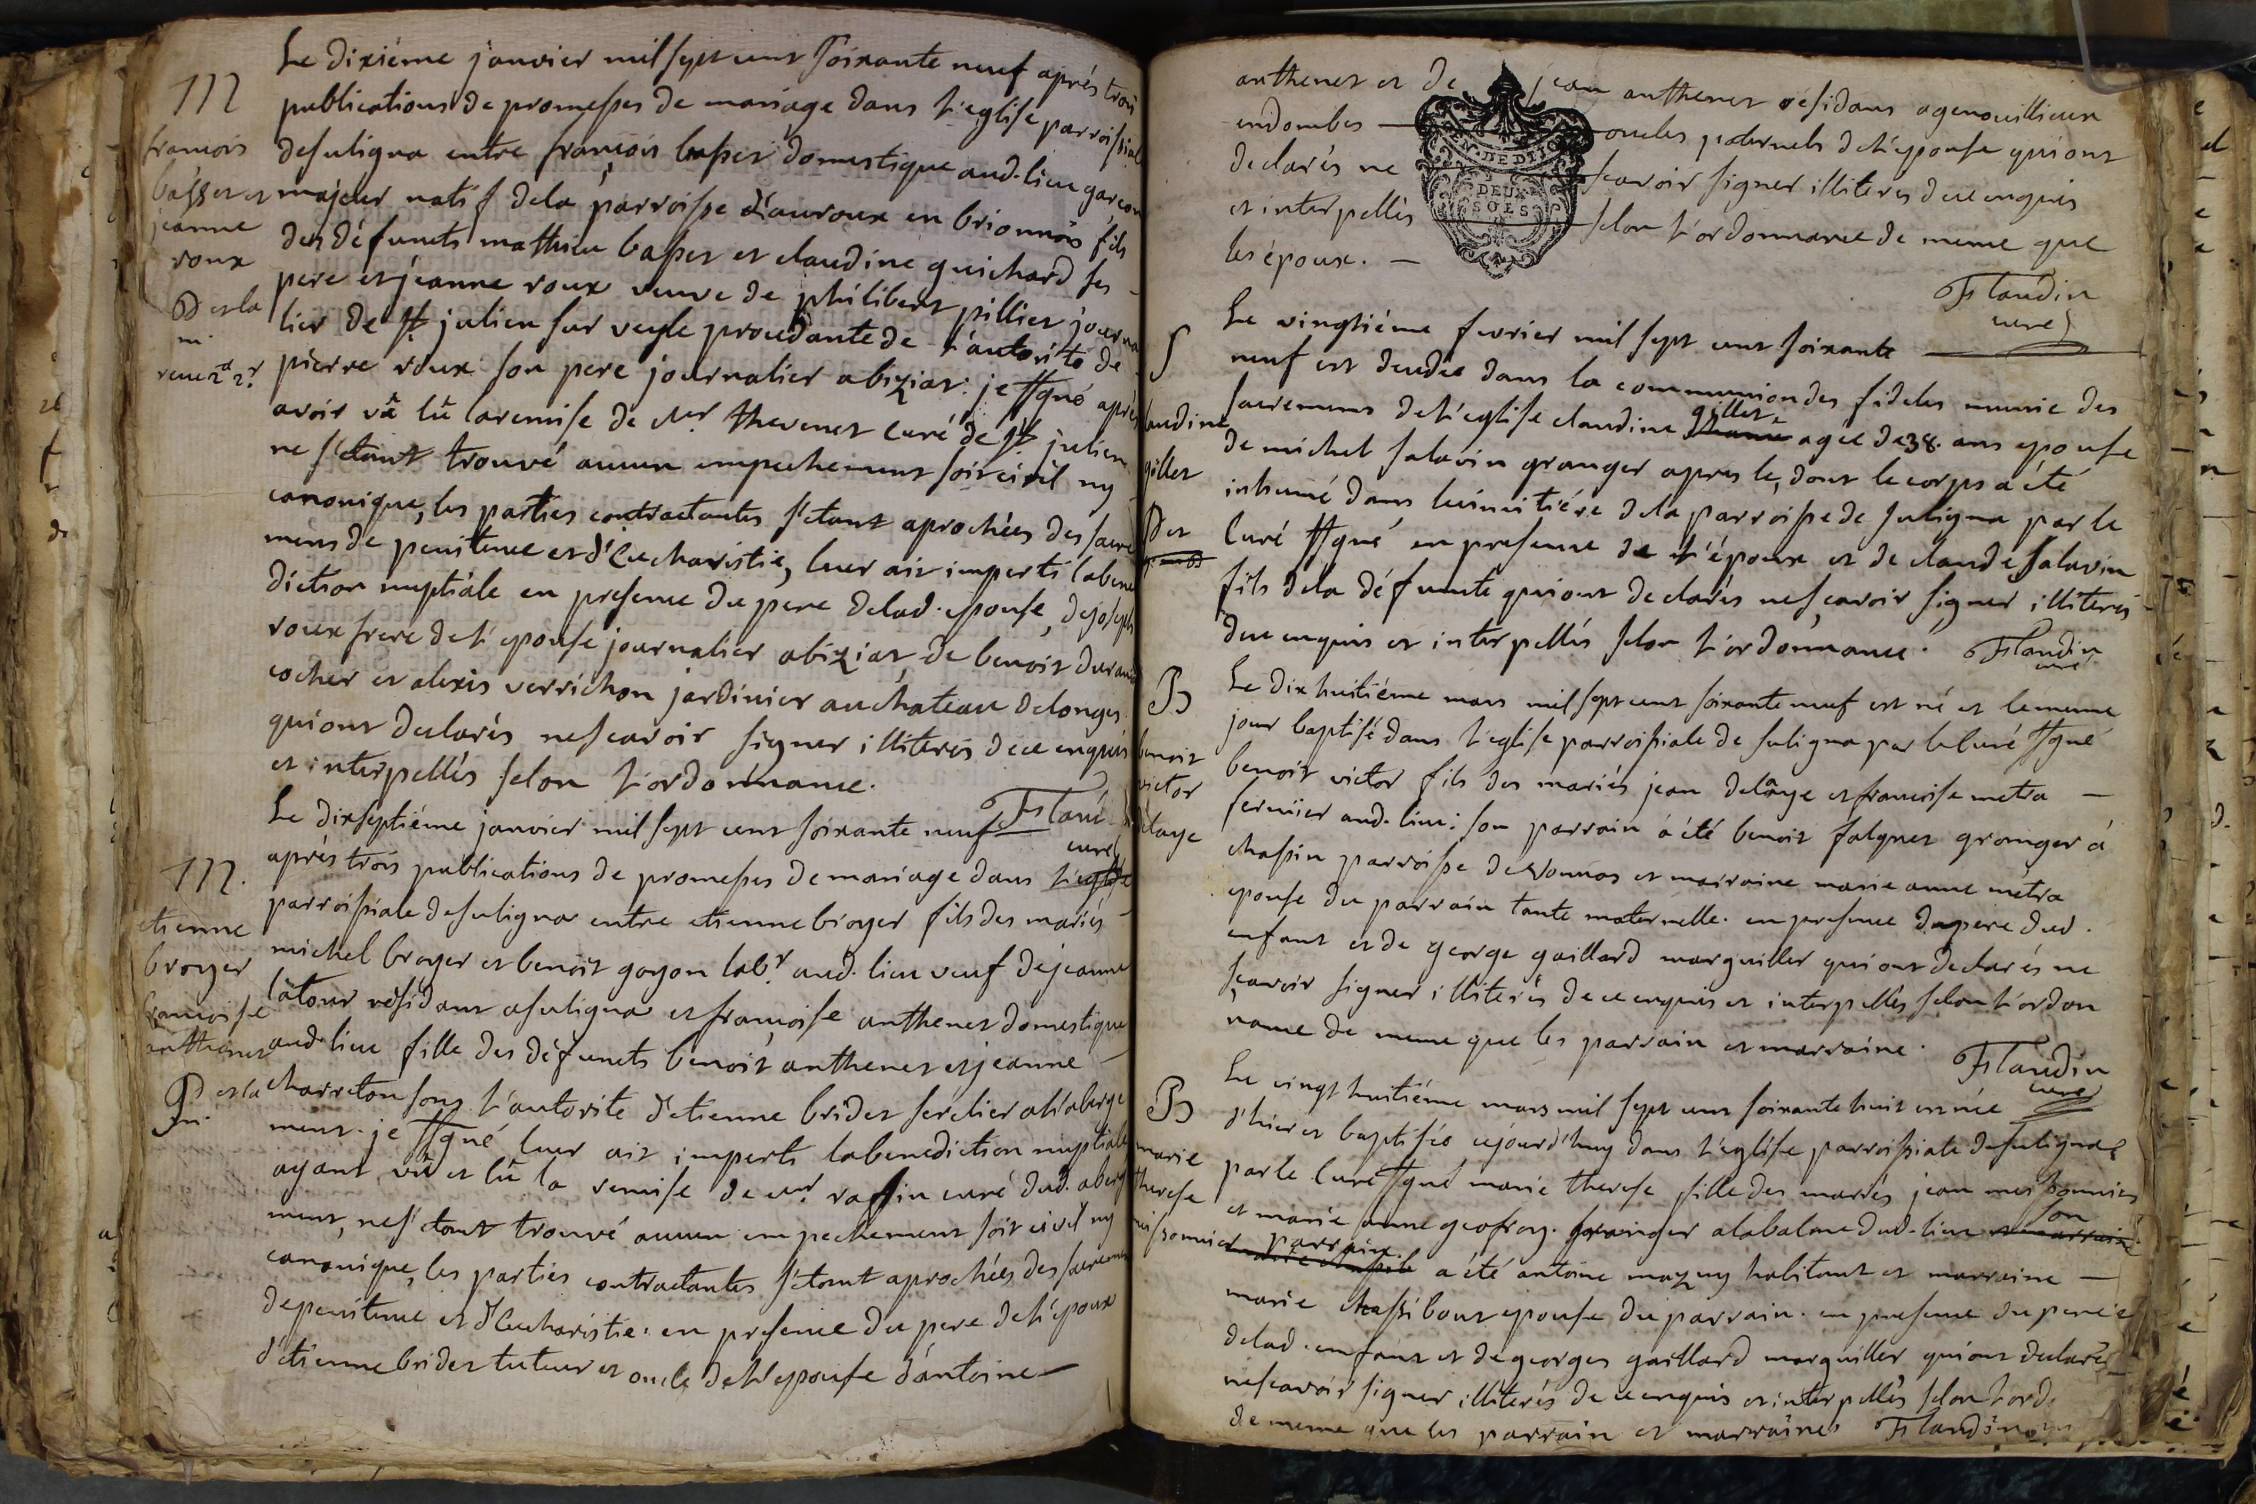 M
françois
basset et
jeanne
roux
D et la
m.
Le dixiéme janvier mil sept cent soixante neuf après trois
publications de promesses de mariage dans l'eglise parroissial
de suligna entre françois basset domestique aud. lieu garçon
majeur natif de la parroisse d'auroux en brionnois fils
des défunts mathieu basset et claudine guichard ses
pere et jeanne roux veuve de philibert pillier journa
lier de st julien sur vesle procedante de l'autorité de
pierre roux son pere journalier a biziat: je ssgné après
avoir vû lû la remise de Mr thevenet curé de st julien
ne s'étant trouvé aucun empechement soit civil ny
canonique, les parties contractantes s'étant aprochées des sacre
mens de penitence et d'Eucharistie, leur ait imparti la bene
diction nuptiale en presence du pere de lad. epouse, de joseph
roux frere de l'epouse journalier a biziat, de benoit durand
cocher et alexis verrichon jardinier au chateau de longes
qui ont declarés ne scavoir signer illiterés de ce enquis
et interpellés selon l'ordonnance.
Flandi
curé
M.
etienne
broyer
francoise
anthenet
D et la
m.
Le dix septiéme janvier mil sept cent soixante neuf
après trois publications de promesses de mariage dans l'eglise
parroissiale de suligna entre etienne broyer fils des mariés
michel broyer et benoit goyon labr. aud. lieu veuf de jeanne
latour résidant a suligna et francoise anthenet domestique
aud. lieu fille des défunts benoit anthenet et jeanne
charreton sous l'autorité d'etienne bridet serclier a l'aberge
ment. je ssgné leur ait imparti la benediction nuptiale
ayant vû et lû la remise de mr. raffin curé dud. aberg
ment, ne s'étant trouvé aucun empechement soit civil ny
canonique, les parties contractantes s'étant aprochées des sacremens
de penitence et d'Eucharistie. en presence du pere de l'époux
d'etienne bridet tuteur et oncle de l'epouse d'antoine
anthenet et de jean anthenet résidans a genouillieux
en dombes oncles paternels de l'epouse qui ont
declarés ne scavoir signer illiterés de ce enquis
et interpellés selon l'ordonnance de meme que
les époux.
N. DE DIJO
DEUX
SOLS
Flandin
curé
S
laudine
gillet
D et
Le vingtiéme fevrier mil sept cent soixante
neuf est decedée dans la communion des fideles munie des
sacremens de l'eglise claudine gillet agée de 38. ans epouse
de michel salavin granger apres le, dont le corps a été
inhumé dans le cimitiére de la parroisse de suligna par le
Curé ssgné en presence de l'époux et de claude salavin
fils de la défunte qui ont declarés ne scavoir signer illiterés
de ce enquis et interpellés selon l'ordonnance. Flandin
curé
B
benoit
victor
delaye
Le dix huitiéme mars mil sept cent soixante neuf est né et le meme
jour baptisé dans l'eglise parroissiale de suligna par le Curé ssgné
benoit victor fils des mariés jean delaye et francoise metra
fermier aud. lieu: son parrain a été benoit salgnet granger à
chassin parroisse de vonnas et marraine marie anne métra
epouse du parrain tante maternelle. en presence du pere dud.
enfant et de george gaillard marguiller qui ont declarés ne
scavoir signer illiterés de ce enquis et interpellés selon l'ordon
nance de meme que les parrain et marraine.
Flandin
curé
B
marie
therese
missonnier
Le vingt huitiéme mars mil sept cent soixante huit est née
d'hier et baptisée cejourd'huy dans l'eglise parroissiale de suligna
par le Curé ssgné marie therese fille des mariés jean missonnier
et marie anne geofroy. granger a la balme dud. lieu son
parrain a été antoine mazuy habitant et marraine
marie chassibout epouse du parrain. en presence du pere
de lad. enfant et de georges gaillard marguiller qui ont declarés
ne scavoir signer illiterés de ce enquis et interpellés selon l'ord.
de meme que les parrain et marraines Flandin